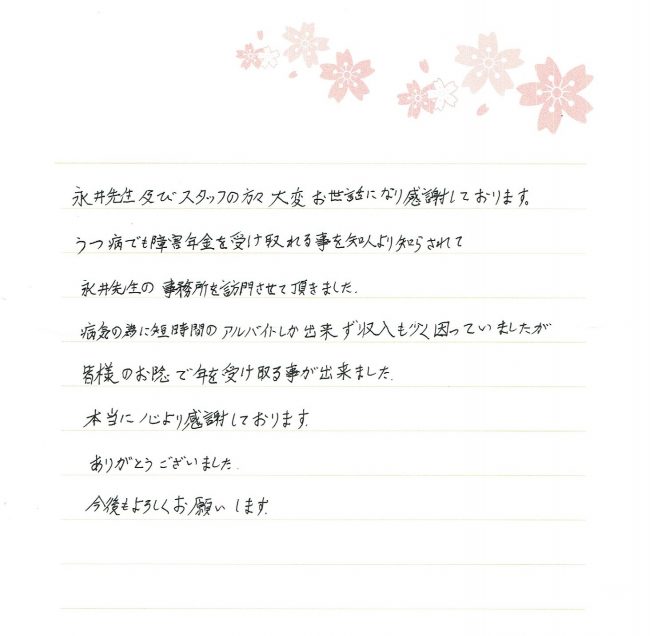 永井先生及びスタッフの方々大変お世話になり感謝しております。
うつ病でも障害年金を受け取れる事を知人より知らされて
永井先生の事務所を訪門させて頂きました.
病気の為に短時間のアルバイトしか出来ず収入も少く困っていましたが
皆様のお陰で年を受け取る事が出来ました.
本当に心より感謝しております.
ありがとうございました.
今後もよろしくお願いします.